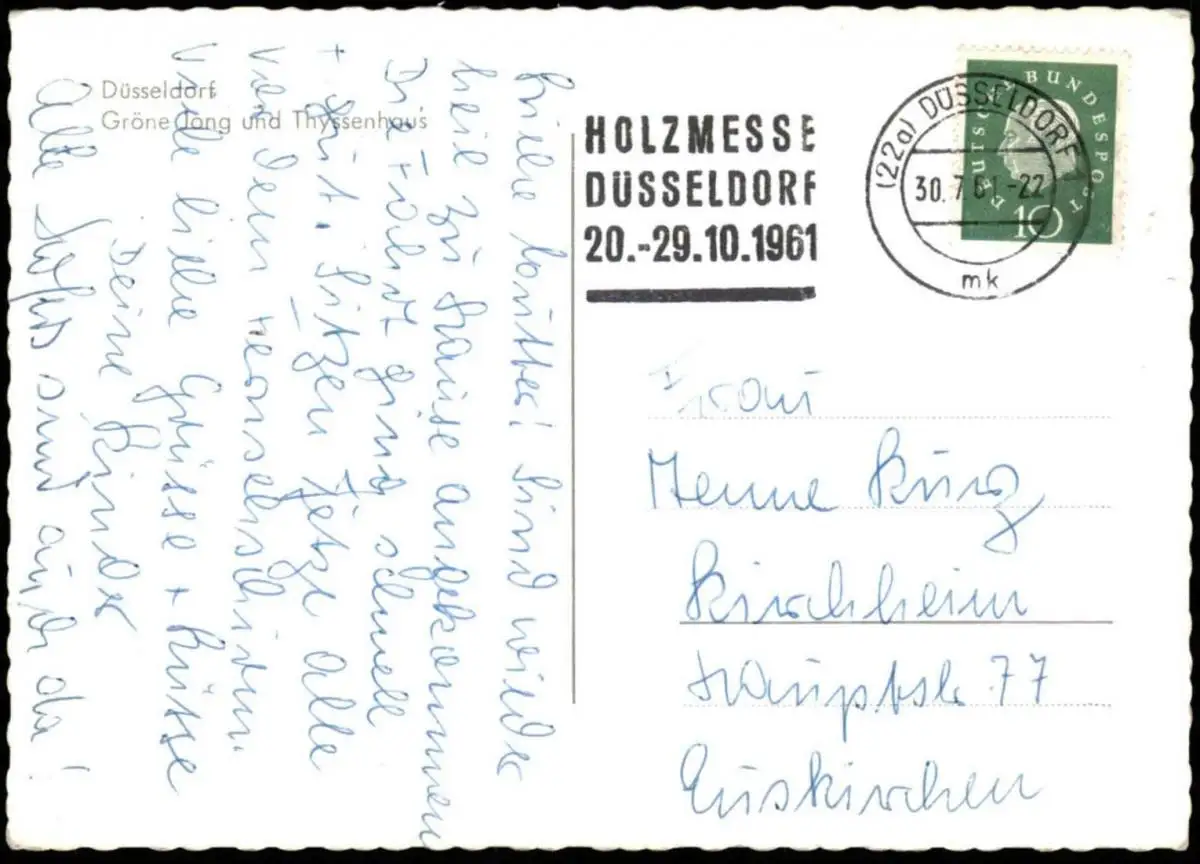 Düsseldorf
Gröne Jong und Thyssenhaus
Liebe Mutter! Sind wieder
heil zu Hause angekommen
Die Fahrt ging schnell
+ gut. Sitzen jetzt alle
vor dem Fernsehschirm.
Viele liebe Grüsse + Küsse
Deine Kinder
Alle sind auch da!
HOLZMESSE
DÜSSELDORF
20.-29.10.1961
(22a) DÜSSELDORF
30.7.61-22
mk
DEUTSCHE BUNDESPOST
10
Frau
Henne Kurz
Kirchheim
Hauptstr 77
Euskirchen